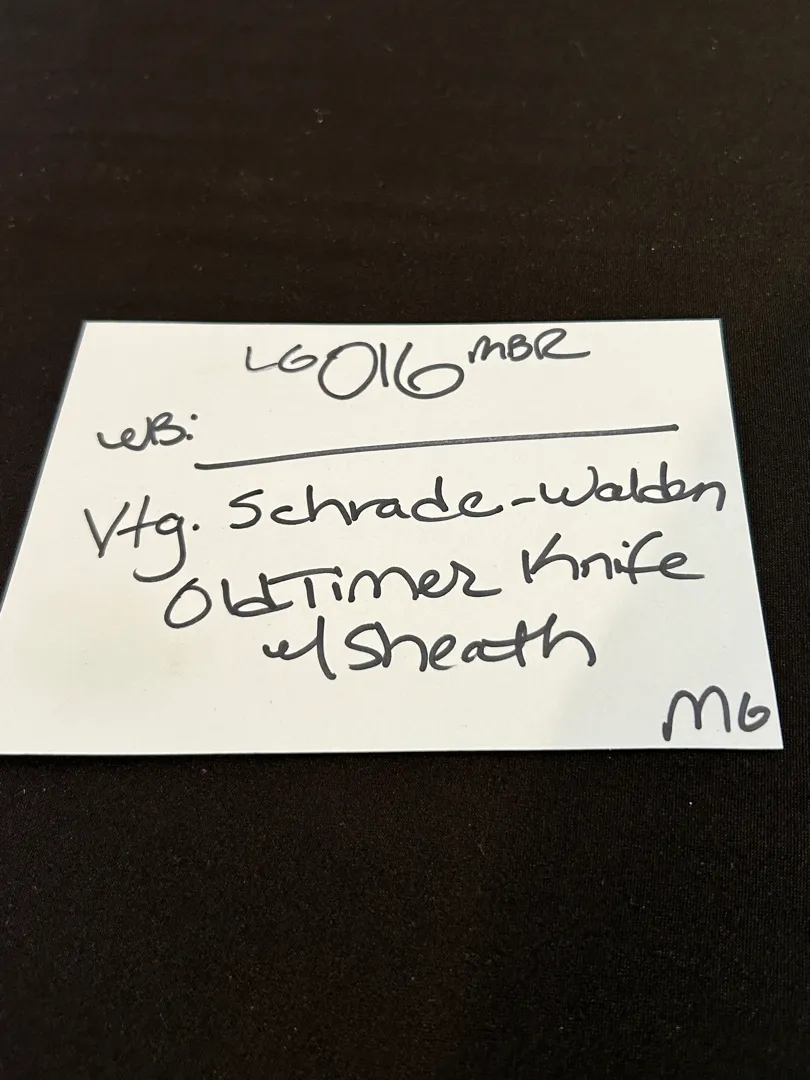 LG 016 MBR
WB:
Vtg. Schrade-Walden
Old Timer Knife
w/ Sheath
MG